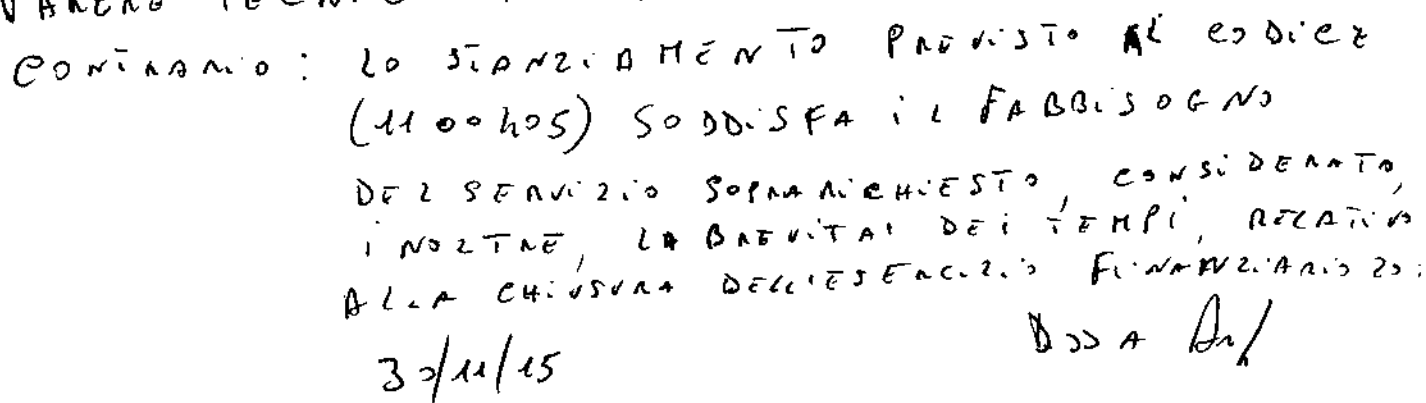 PARERE TECNICO
CONTRARIO: LO STANZIAMENTO PREVISTO AL CODICE
(1100405) SODDISFA IL FABBISOGNO
DEL SERVIZIO SOPRARICHIESTO, CONSIDERATO,
INOLTRE, LA BREVITA' DEI TEMPI, RELATIVA
ALLA CHIUSURA DELL'ESERCIZIO FINANZIARIO 20
30/11/15